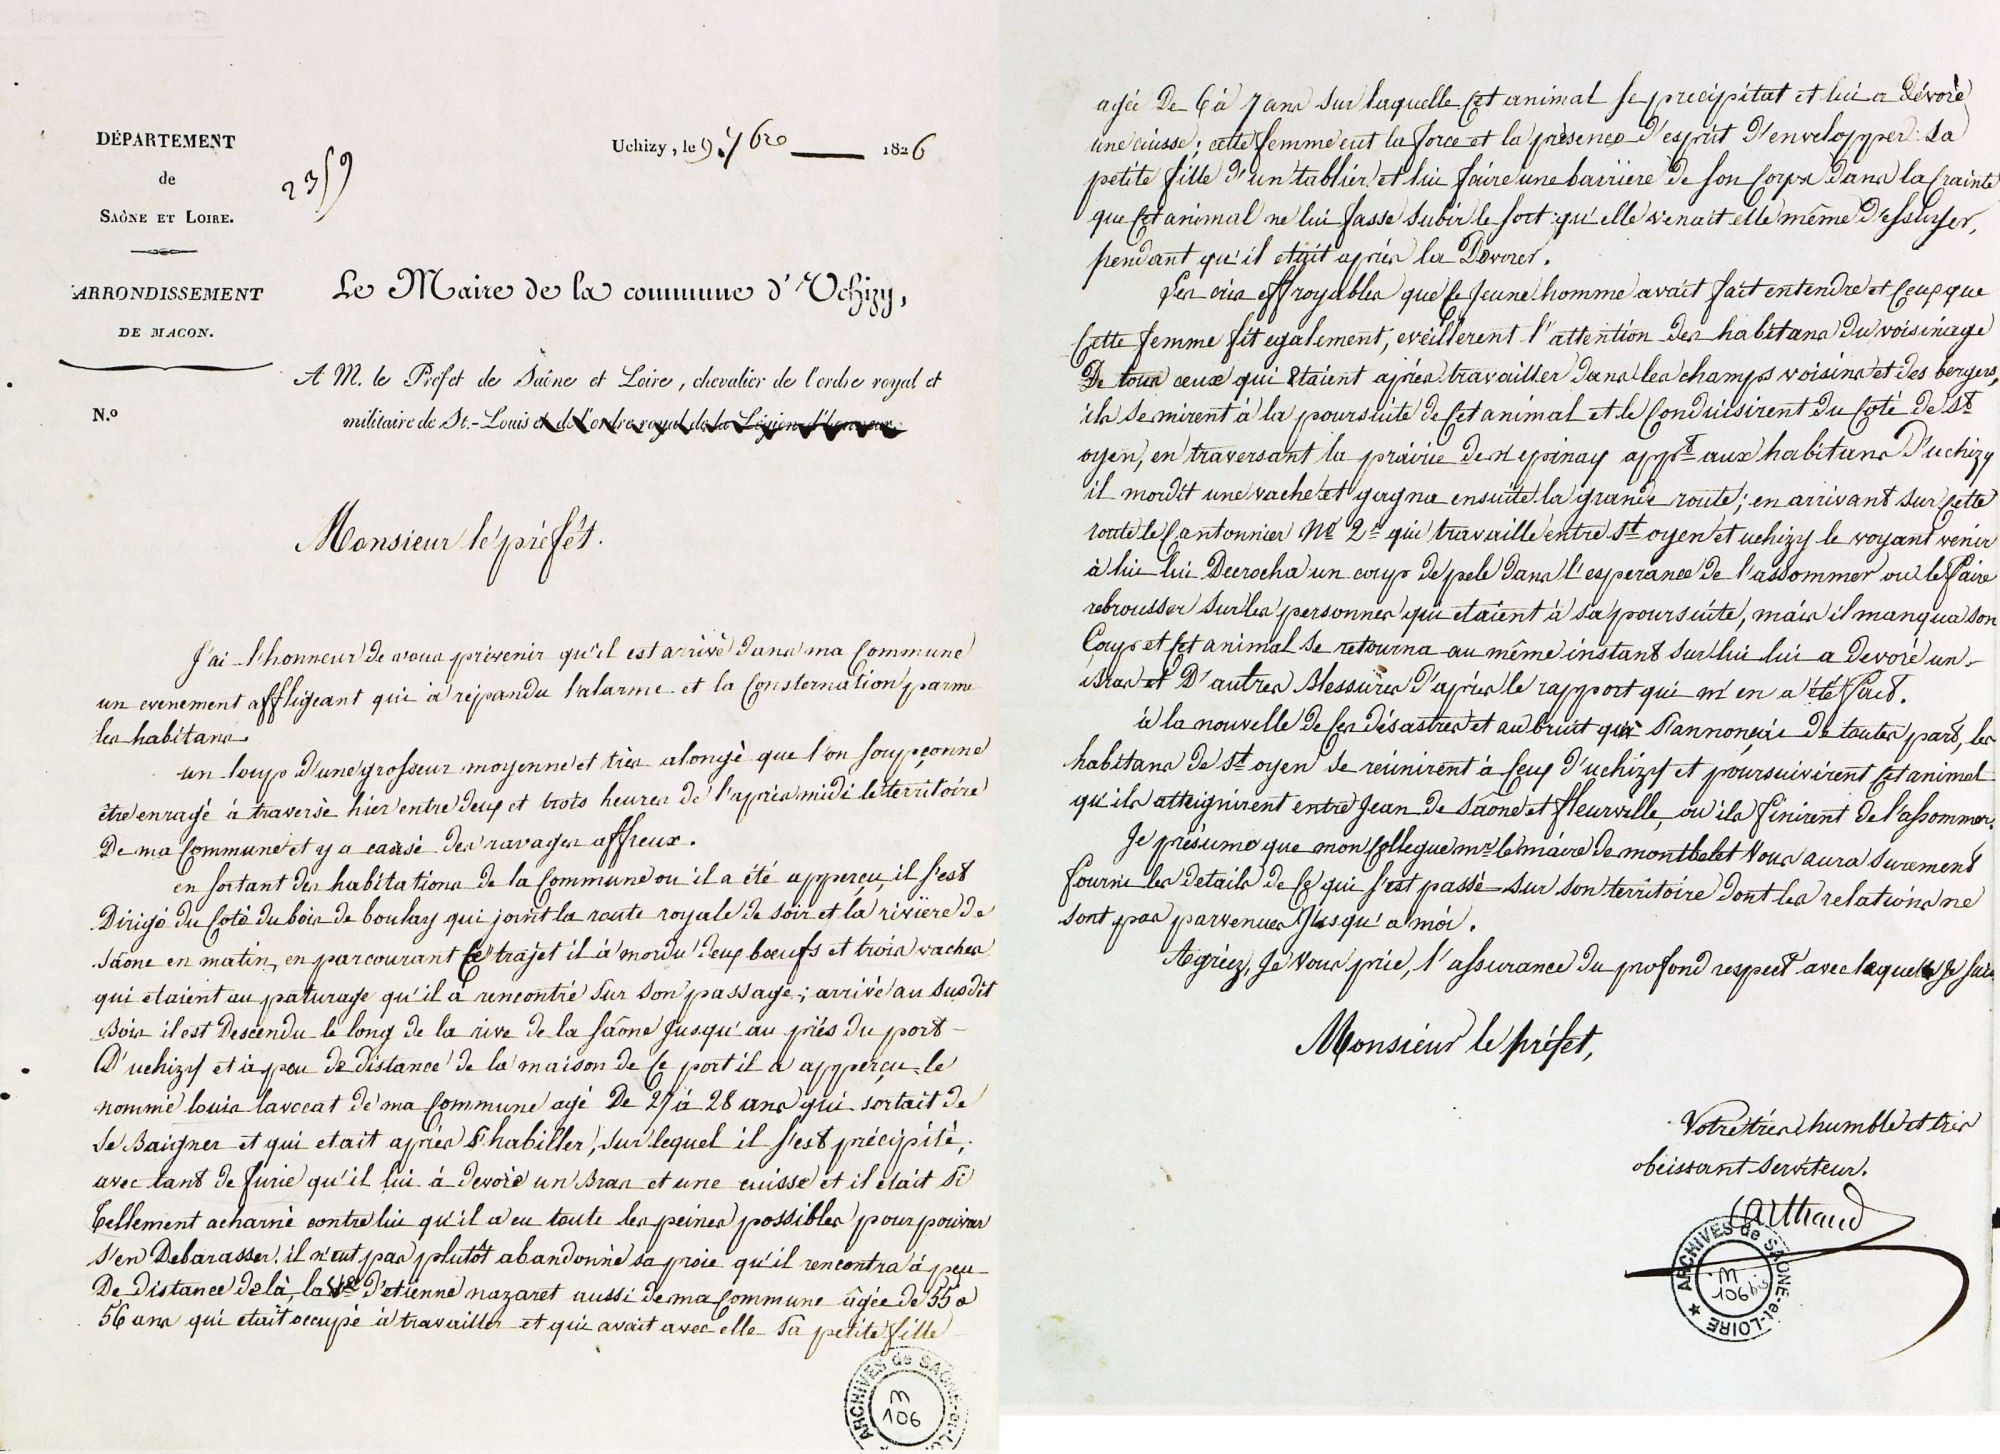 DÉPARTEMENT
de
SAÔNE ET LOIRE.
ARRONDISSEMENT
DE MACON.
N.o
2359
Uchizy, le 9. 7bre 1826
Le Maire de la commune d'Uchizy,
A M. le Préfet de Saône et Loire, chevalier de l'ordre royal et
militaire de St.-Louis et de l'ordre royal de la Légion d'honneur.
Monsieur le préfét.
J'ai l'honneur de vous prévenir qu'il est arrivé dans ma Commune
un evenement affligeant qui à répandu l'alarme et la Consternation parmi
les habitans.
un loup d'une grosseur moyenne et très alongé que l'on soupçonne
être enragé à traversé hier entre deux et trois heures de l'après midi le territoire
De ma Commune et y a causé des ravages affreux.
en sortant des habitations de la Commune ou il a été apperçu, il s'est
Dirigé du Coté du bois de boulay qui joint la route royale de soir et la rivière de
Sâone en matin, en parcourant ce trajet il à mordu deux bœufs et trois vaches
qui etaient au paturage qu'il a rencontré sur son passage; arrivé au susdit
Bois il est Descendu le long de la rive de la Sâone Jusqu'au près du port
D'uchizy et à peu de distance de la maison de ce port il a apperçu le
nommé louis lavocat de ma Commune agé De 27 à 28 ans qui sortait de
se Baigner et qui etait après s'habiller, sur lequel il s'est précipité,
avec tant de furie qu'il lui à devoré un Bras et une cuisse et il était si
tellement acharné contre lui qu'il a eu toute les peines possibles pour pouvoir
s'en Debarasser. il n'eut pas plutôt abandonné sa proie qu'il rencontra à peu
De distance de là, la d'etienne nazaret aussi de ma Commune âgée de 55 a
56 ans qui etait occupé à travailler et qui avait avec elle sa petite fille
ARCHIVES de SAÔNE-et-LOIRE
M
106
agée De 6 à 7 ans sur laquelle cet animal se precipitat et lui a dévoré
une cuisse; cette femme eut la force et la présence d'esprit d'envelopper sa
petite fille d'un tablier et lui faire une barriere de son Corps dans la Crainte
que Cet animal ne lui fasse subir le sort qu'elle venait elle même d'essuyer,
pendant qu'il etait après la Dévorer.
Les cris effroyables que ce Jeune homme avait fait entendre et Ceux que
Cette femme fit egalement, eveillerent l'attention des habitans du voisinage
De tous ceux qui étaient après travailler dans les champs voisins et des bergers,
ils se mirent à la poursuite de Cet animal et le Conduisirent du Coté de St
oyen, en traversant la prairie de l'epinay appt aux habitans d'uchizy
il mordit une vache et gagna ensuite la grande route; en arrivant sur Cette
route le Cantonnier No 2 qui travaille entre St oyen et uchizy le voyant venir
à lui lui Decrocha un coup de pele dans l'esperance de l'assommer ou le faire
rebrousser sur les personnes qui etaient à sa poursuite, mais il manqua son
Coup et Cet animal se retourna au même instant sur lui lui a devoré un
Bras et D'autres Blessures d'après le rapport qui m'en a été fait.
à la nouvelle de ces désastres et au bruit qui s'annonçai de toutes part, les
habitans de St oyen se reünirent à Ceux d'uchizy et poursuivirent Cet animal
qu'ils atteignirent entre Jean de Sâone et fleurville, ou ils finirent de l'assommer.
Je présume que mon Collegue mr le maire de montbelet Vous aura surement
fourni les details de Ce qui s'est passé sur son territoire dont les relations ne
sont pas parvenues Jusqu'a moi.
Agréez, Je Vous prie, l'assurance du profond respect avec lequel Je suis
Monsieur le préfet,
Votre très humble et très
obeissant serviteur.
ARCHIVES de SAÔNE-et-LOIRE
M
106 bis